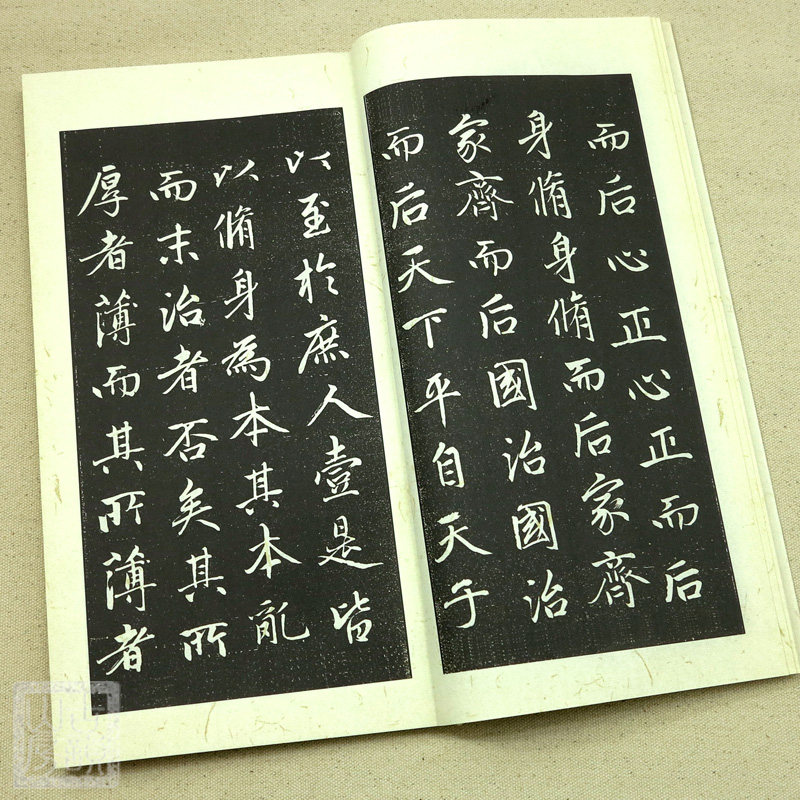 而后心正心正而后
身脩身脩而后家齊
家齊而后國治國治
而后天下平自天子
以至於庶人壹是皆
以脩身為本其本亂
而末治者否矣其所
厚者薄而其所薄者